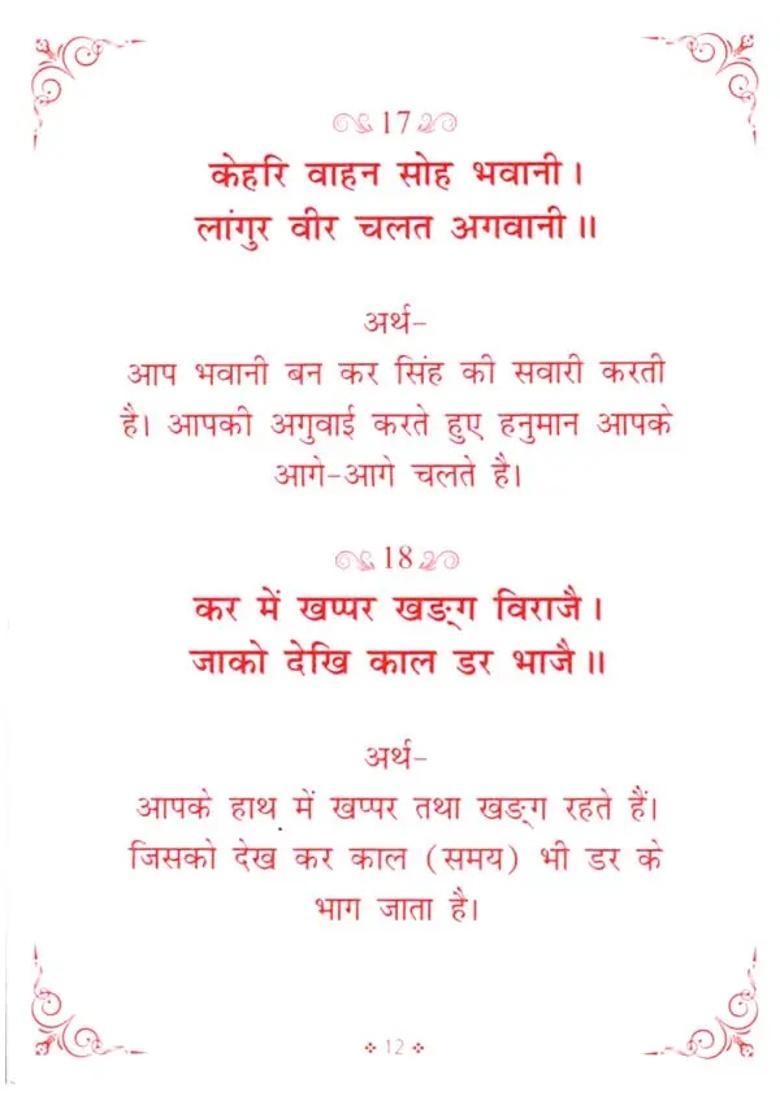 17
केहरि वाहन सोह भवानी।
लांगुर वीर चलत अगवानी॥
अर्थ-
आप भवानी बन कर सिंह की सवारी करती
है। आपकी अगुवाई करते हुए हनुमान आपके
आगे-आगे चलते है।
18
कर में खप्पर खङ्ग विराजै।
जाको देखि काल डर भाजै॥
अर्थ-
आपके हाथ में खप्पर तथा खङ्ग रहते हैं।
जिसको देख कर काल (समय) भी डर के
भाग जाता है।
12